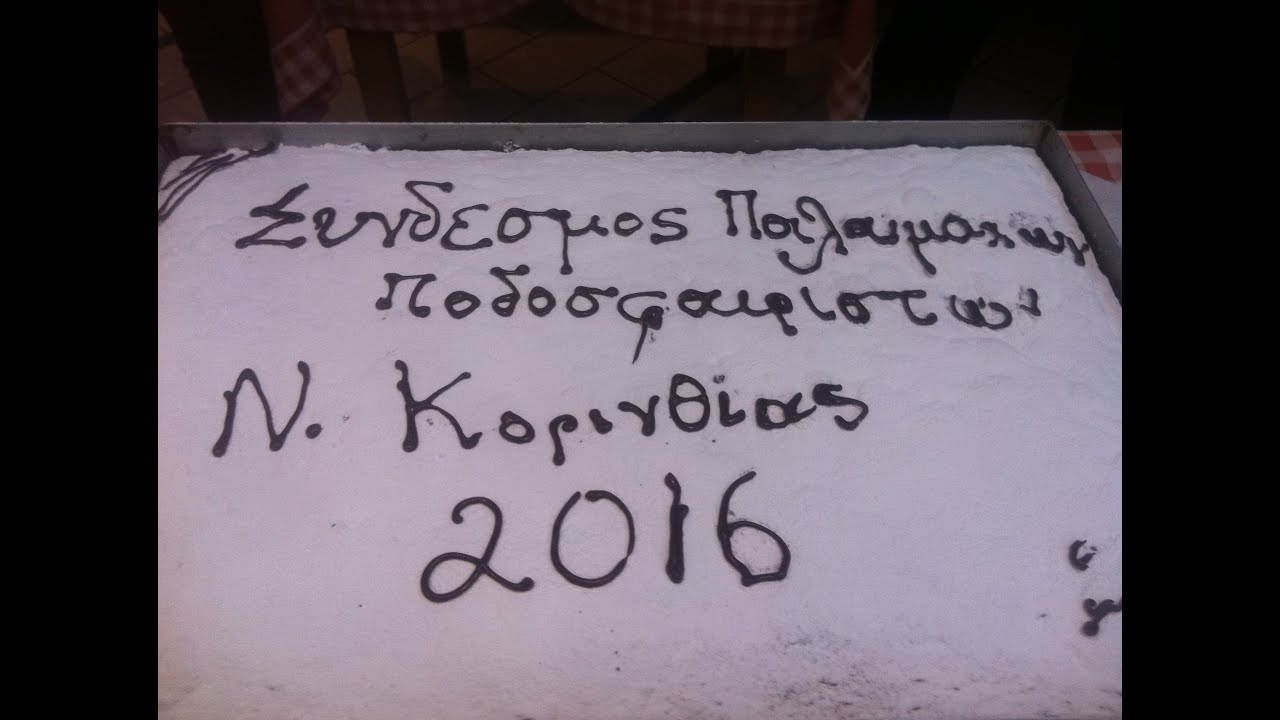 Συνδεσμος Παλαιμαχων
Ποδοσφαιριστων
Ν. Κορινθίας
2016